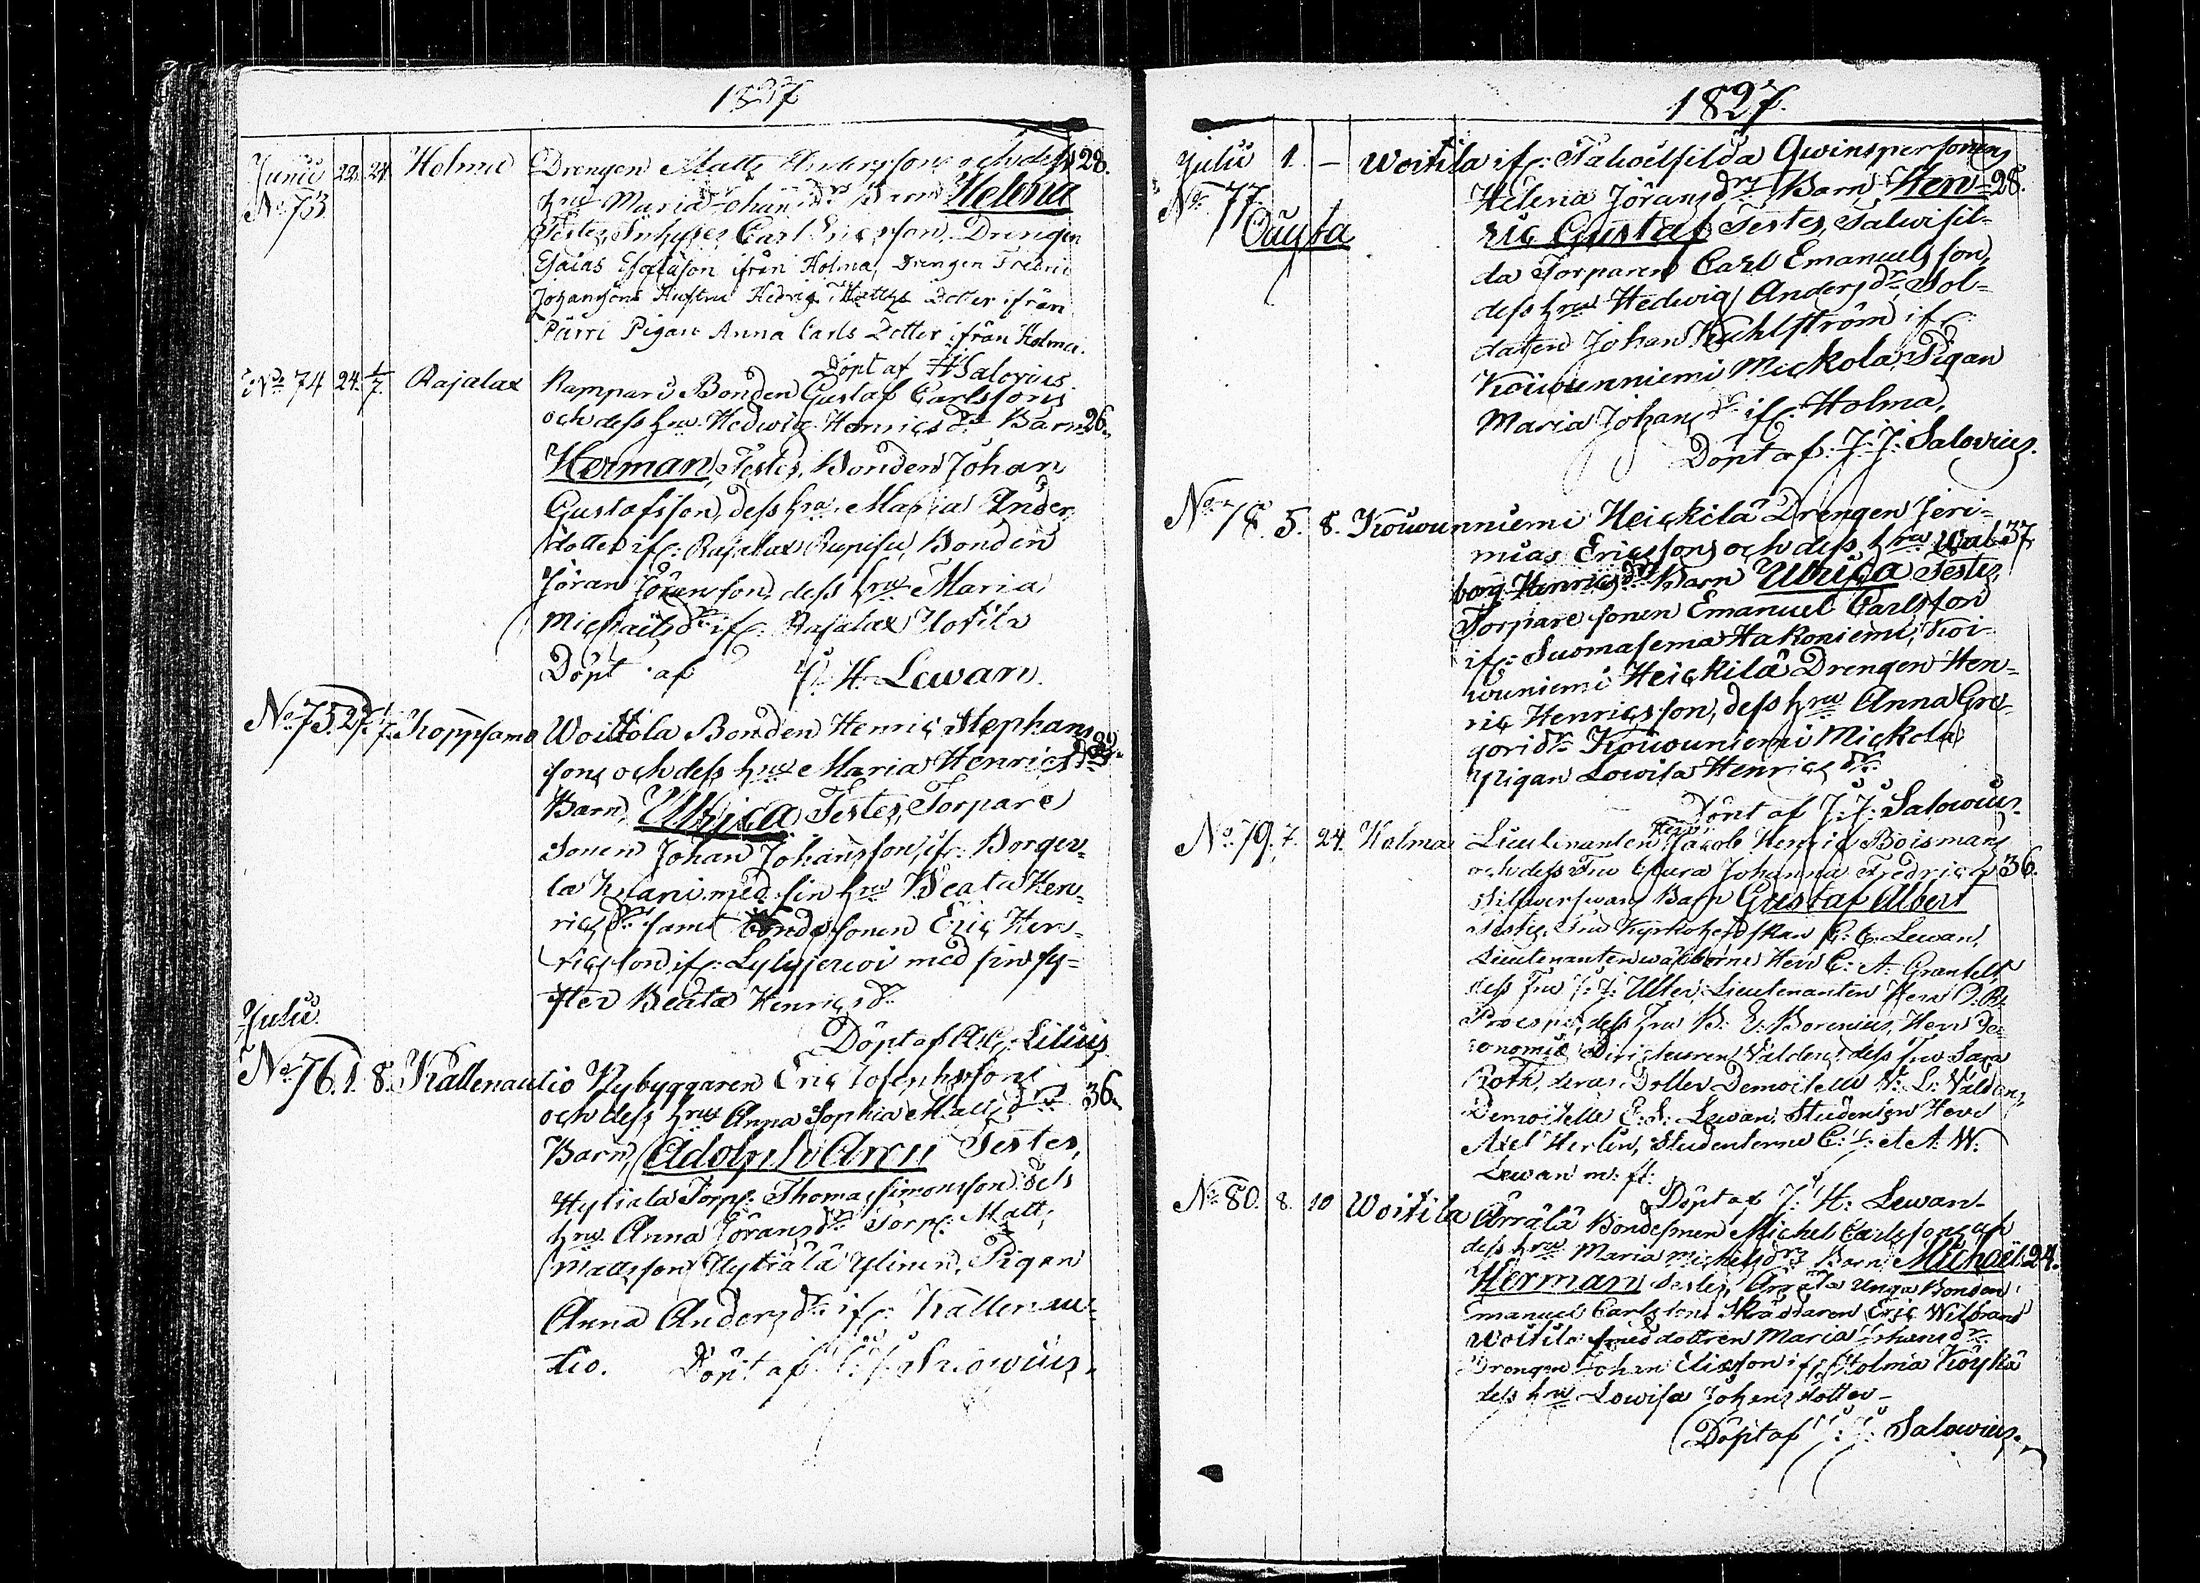 1827
Junii 22. 24. Holma Drengen Matts Anderssons och dess 28.
No 73 hru Maria Johans dr Barn Helena
Testes, Inhyses Carl Ericsson, Drengen
Esaias Esaiasson ifrån Holma, Drengen
Johanssons Hustru Hedvig Matts Dotter ifrån
Pärri Pigan Anna Carls Dotter ifrån Holma.
Döpt af Salovius
No 74 24. 1/7. Rajalax Rampari Bonden Gustaf Carlssons
och dess hru Hedwig Henrics dr Barn 26.
Herman, Testes, Bonden Johan
Gustafsson, dess hru Maria Anders
dotter ifr: Rajalax Bonden
Jöran Jöransson, dess hru Maria
Michaels dr ifr: Rajalax
Döpt af J. H. Lewan.
No 75. 27. 1/7. Koppsamo Woitola Bonden Henric Stephans
sons och dess hru Maria Henrics drs
Barn, Ulrica Testes, Torpare
Sonen Johan Johansson, ifr: Borger-
la med sin hru Beata Hen-
rics dr samt Bondesonen Eric Hen-
ricsson ifr: Lylyjerwi med sin sy-
ster Beata Henrics dr
Döpt af Lilius
Julii
No 76. 1. 8. Källenautio Nybyggaren Eric
och dess hru Anna Sophia Matts drs 36.
Barn, Adolph Testes,
Hytiälä Torp: Thomas Simonsson dess
hru Anna Jörans dr Torp: Matts
Mattsson Hytiälä Ylinen, Pigan
Anna Anders dr ifr: Källenau-
tio. Döpt af J: J: Salowius.
1827.
Julii 1. – Woitila ifr: Qwinspersonens
No 77. Helena Jörans drs Barn, Hen- 28.
Oäyta ric Gustaf Testes,
da Torparen Carl Emanuelsson,
dess hru Hedwig Anders dr, Sol-
daten Johan ifr:
Kouwunniemi Mickola, Pigan
Maria Johans dr ifr: Holma,
Döpt af: J: J: Salovius.
No 78. 5. 8. Kouwunniemi Heickilä Drengen Jeri-
mias Ericssons och dess hru Wal- 37
borg Henrics drs Barn Ulrica Testes,
Torpare sonen Emanuel Carlsson
ifr: Suomasema Hakoniemi, Koi-
wuniemi Heickilä Drengen Hen-
ric Henricsson, dess hru Anna Gre-
gori dr Kouwuniemi Mickola
Pigan Lowisa Henrics dr:
Döpt af J: J: Salowius.
No 79. 7. 24. Holma Lieutenanten Herr Jacob Henric Boismans
och dess Fru Johanna Fredrica 36.
Barn Gustaf Albert
Testes, Fru Kyrkoherdskan C: C: Lewan,
Lieutenanten wälborne Herr C: A: Granfelt
dess Fru Lieutenanten Herr
dess Fru B: E: Borenius, Herr Oe-
conomie Directeuren dess Fru Sara
Roth, deras Dotter Demoiselle
Demoiselle E: S: Lewan, Studenten Herr
Axel Herlin, Studenterne C: J: et A: W:
Lewan m: fl:
Döpt af J: H: Lewan-
No 80. 8. 10 Woitila Ärrälä Bondesonen Michel Carlssons och
dess hru Maria Michels drs Barn Michaël 24.
Herman Testes, Unga Bonden
Emanuel Carlsson Skräddaren Eric Wilbrand
Woitila Smed dottren Maria Johans dr
Drengen Johan Eliasson ifr: Holma Köykä
dess hru Lowisa Johans dotter –
Döpt af J: J: Salowius.